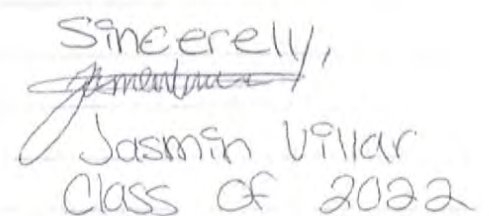 Sincerely,
Jasmin Villar
Class of 2022